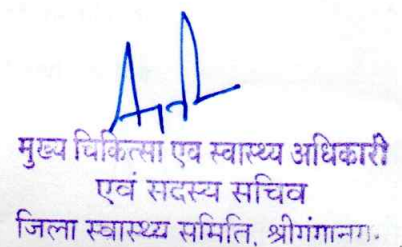 मुख्य चिकित्सा एव स्वास्थ्य अधिकारी
एवं सदस्य सचिव
जिला स्वास्थ्य समिति, श्रीगंगानग.